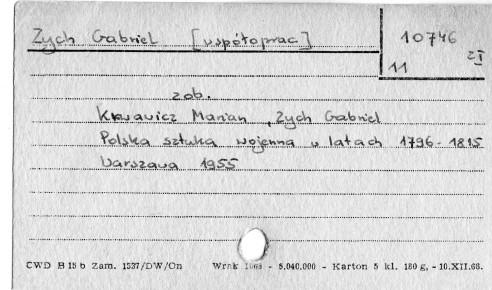 Zych Gabriel [współoprac] 10746
11 ZI
zob.
Krwawicz Marian, Zych Gabriel
Polska sztuka wojenna w latach 1796-1815
Warszawa 1955
CWD B 15 b Zam. 1537/DW/On Wrak - 5.040.000 - Karton 5 kl. 180 g, - 10.XII.68.